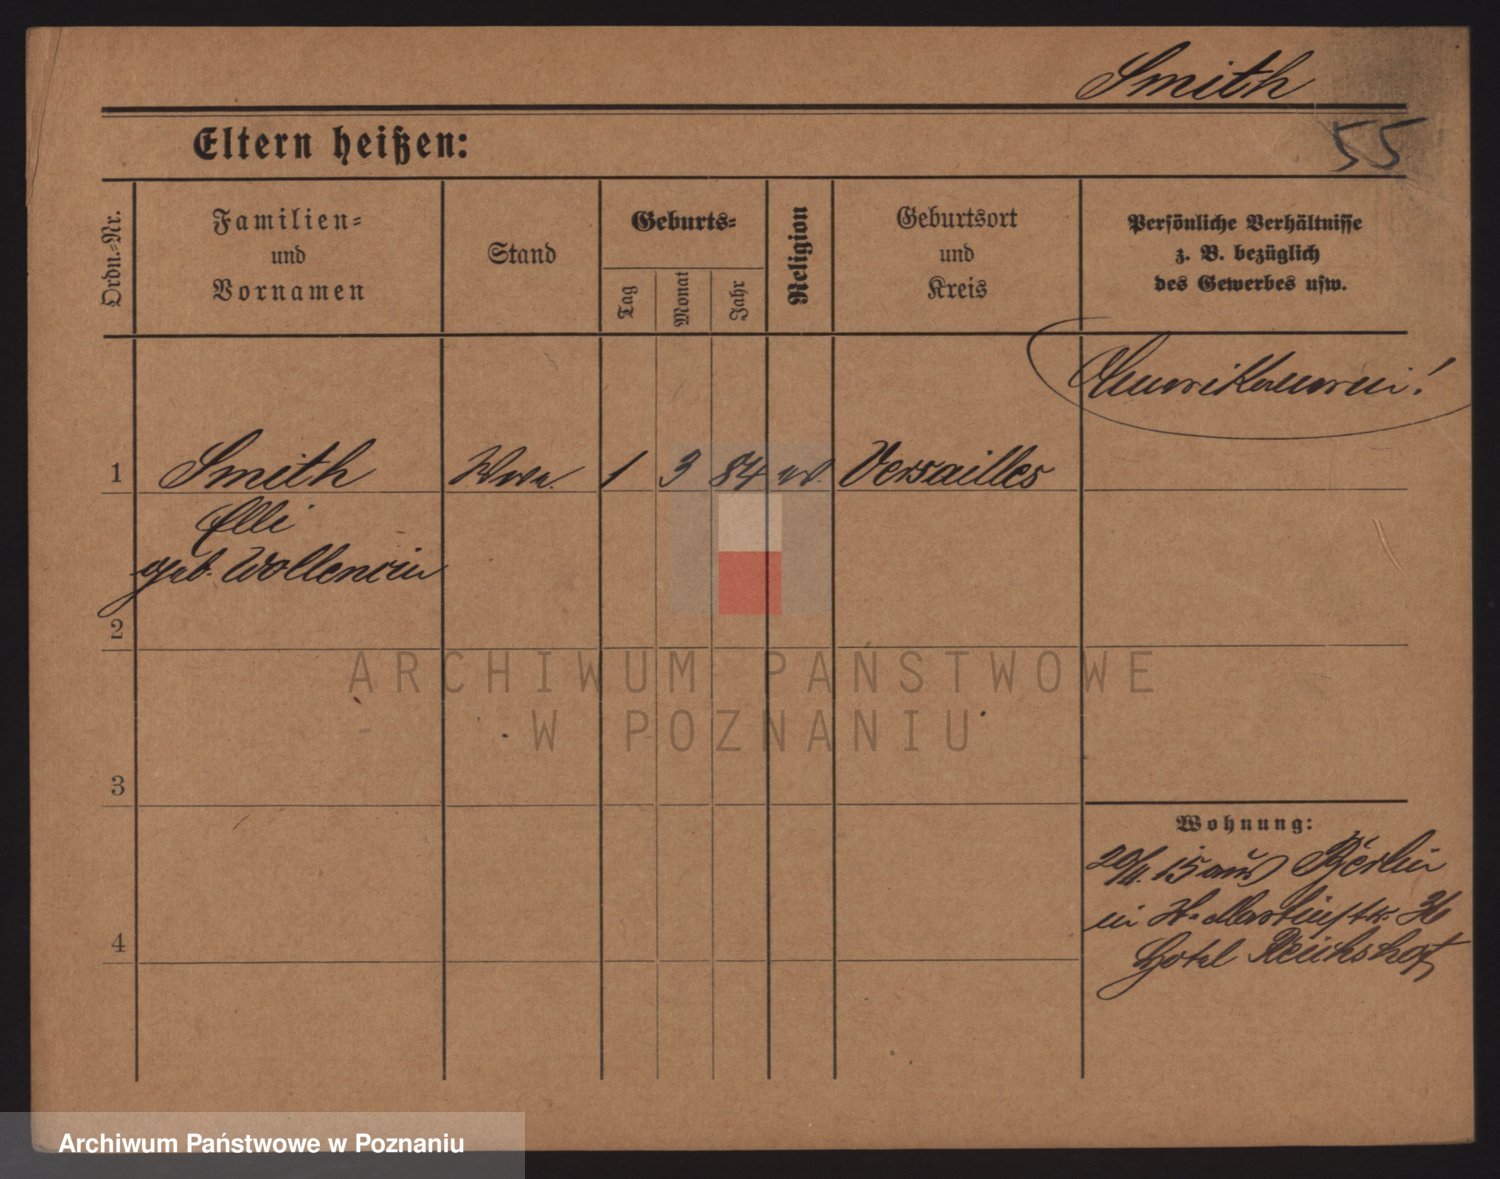 Smith
55
Eltern heißen:
Ordn.-Nr.
Familien-
und
Vornamen
Stand
Geburts-
Tag
Monat
Jahr
Religion
Geburtsort
und
Kreis
Persönliche Verhältnisse
z. B. bezüglich
des Gewerbes usw.
Amerikanerin!
1 Smith Wwe. 1 3 84 Versailles
Elli
geb.
2
3
4
Wohnung:
20/11. 15 aus Berlin
in St. Martinstr. 36
Hotel Reichshof
ARCHIWUM PAŃSTWOWE
W POZNANIU
Archiwum Państwowe w Poznaniu